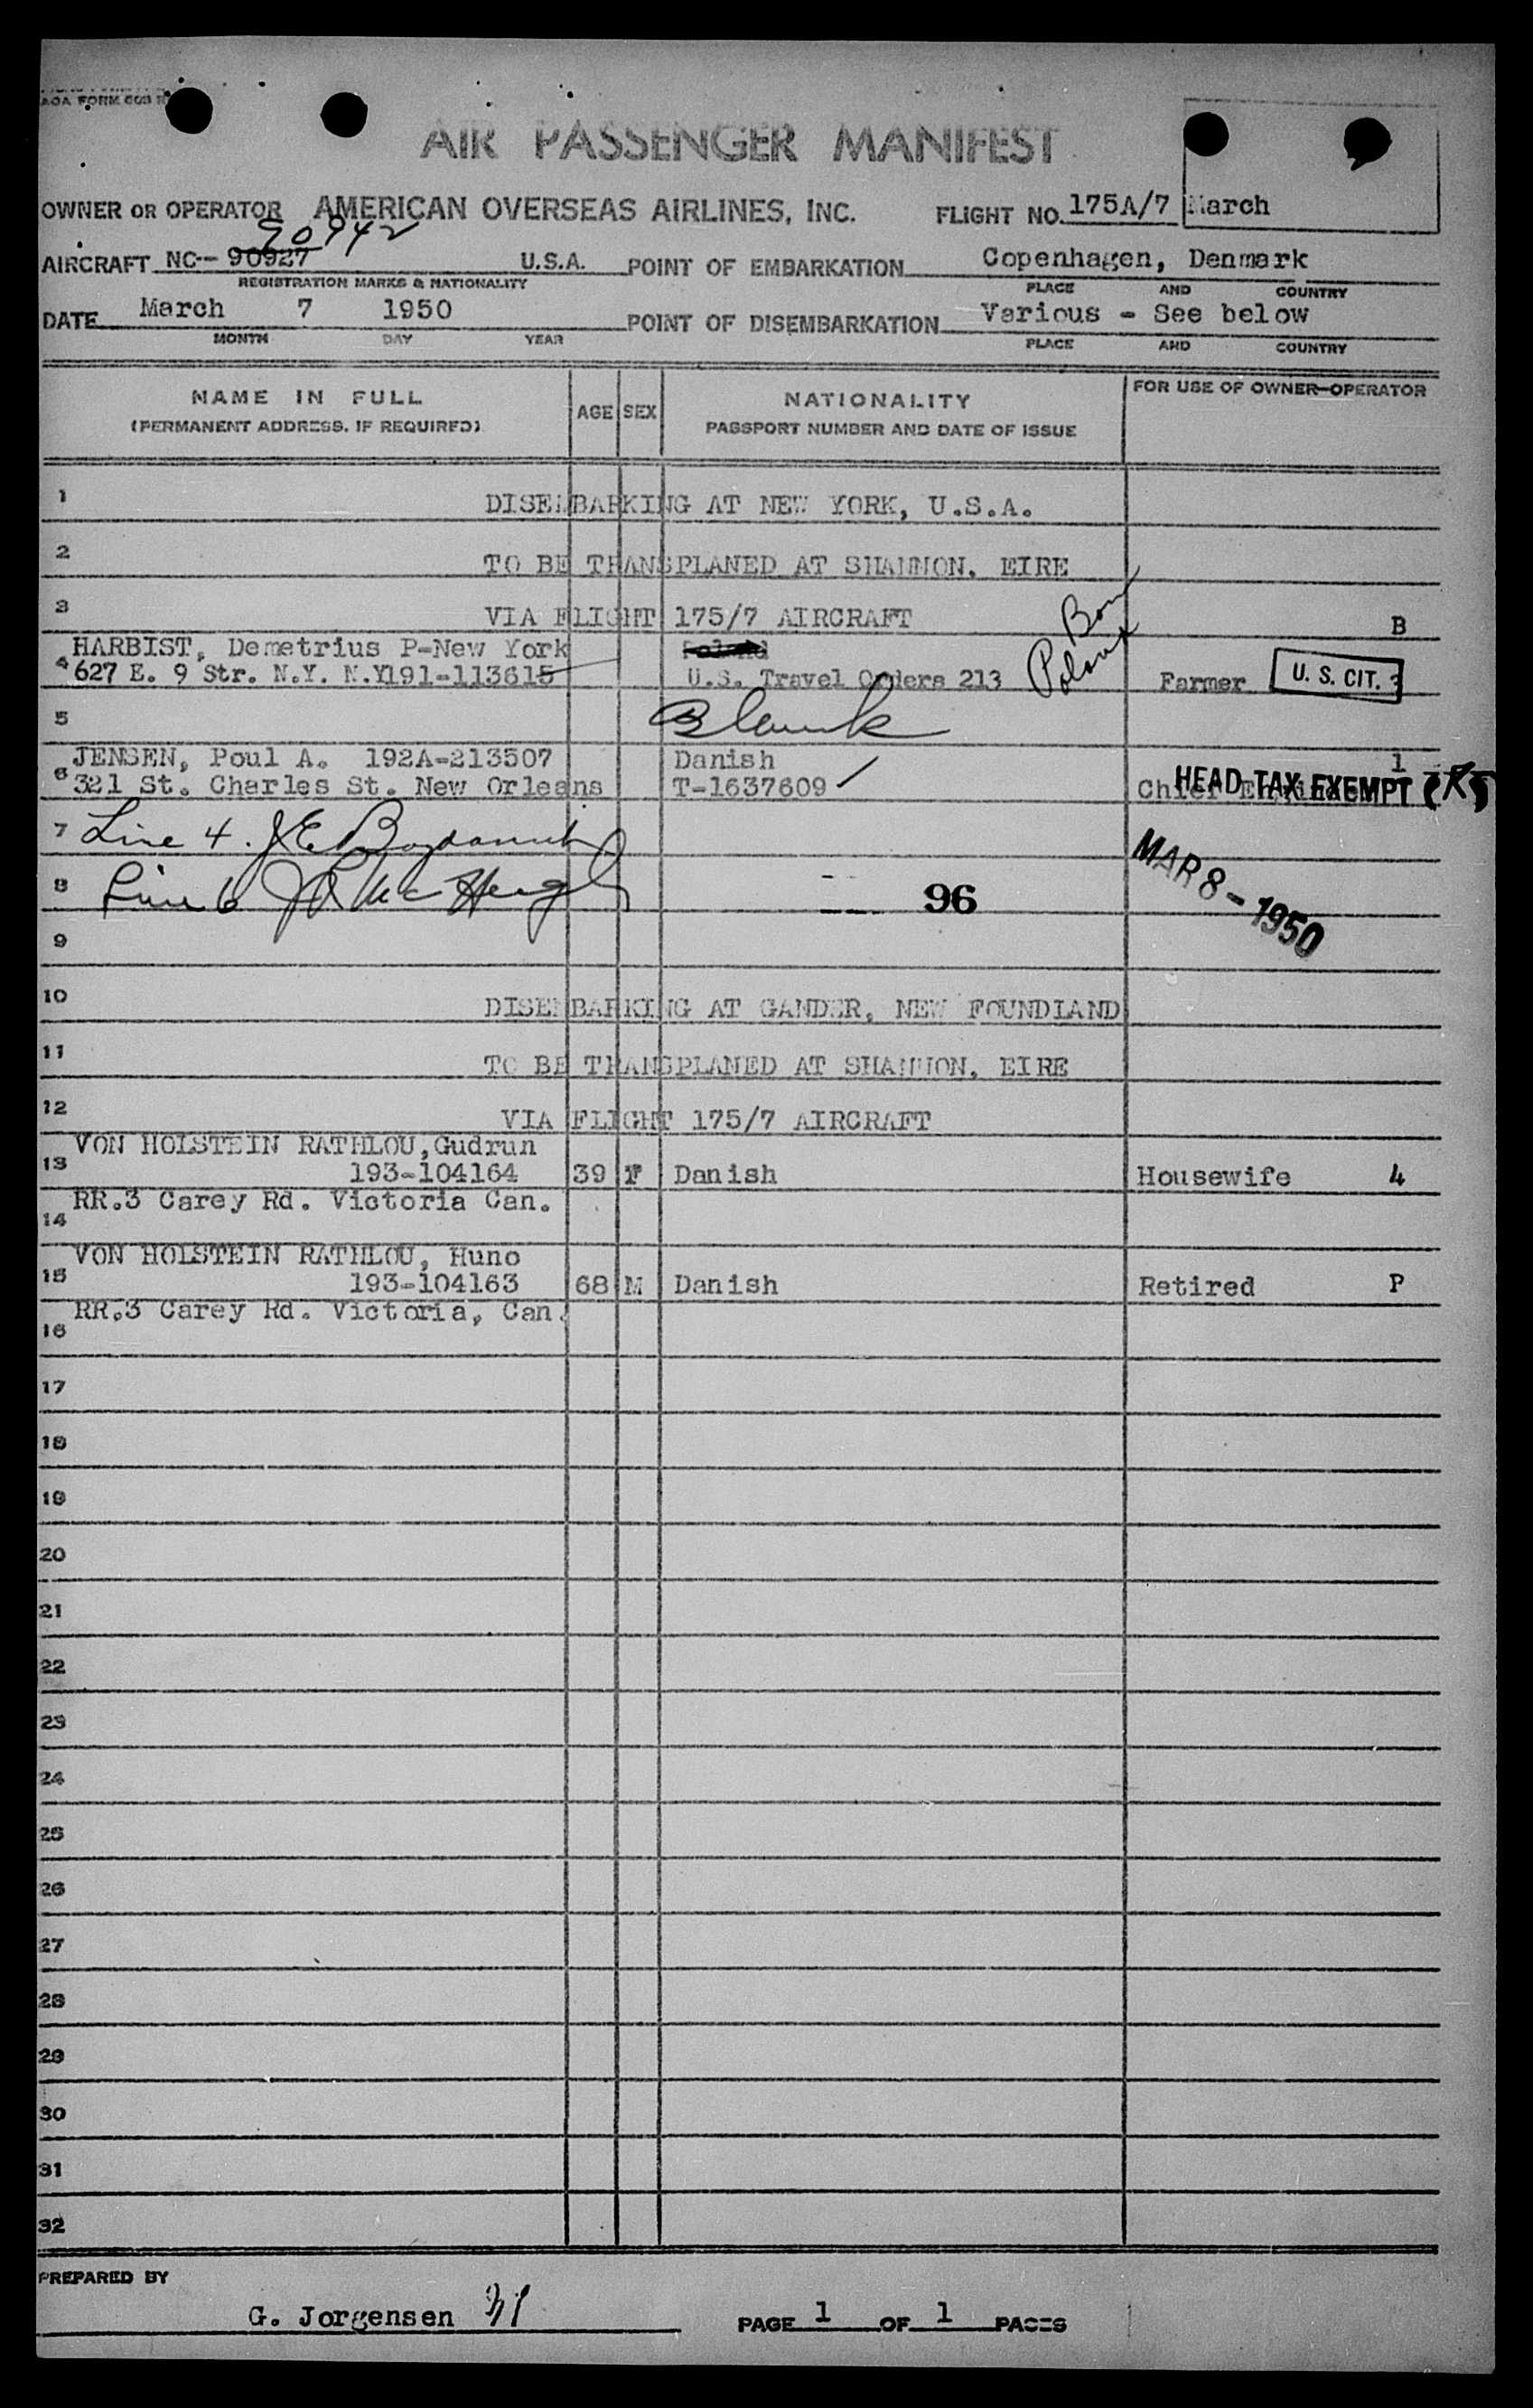 AOA FORM 603
AIR PASSENGER MANIFEST
OWNER OR OPERATOR AMERICAN OVERSEAS AIRLINES, INC. FLIGHT NO. 175A/7 March
90942
AIRCRAFT NC-- 90927 U.S.A. POINT OF EMBARKATION Copenhagen, Denmark
REGISTRATION MARKS & NATIONALITY PLACE AND COUNTRY
DATE March 7 1950 POINT OF DISEMBARKATION Various - See below
MONTH DAY YEAR PLACE AND COUNTRY
NAME IN FULL AGE SEX NATIONALITY FOR USE OF OWNER-OPERATOR
(PERMANENT ADDRESS, IF REQUIRED) PASSPORT NUMBER AND DATE OF ISSUE
1 DISEMBARKING AT NEW YORK, U.S.A.
2 TO BE TRANSPLANED AT SHANNON, EIRE
3 VIA FLIGHT 175/7 AIRCRAFT Born B
HARBIST, Demetrius P-New York Poland Poland
4 627 E. 9 Str. N.Y. N.Y191-113615 U.S. Travel Orders 213 Farmer U. S. CIT.
5 Blank
JENSEN, Poul A. 192A-213507 Danish 1
6 321 St. Charles St. New Orleans T-1637609 Chief HEAD TAX EXEMPT
7 Line 4.
MAR 8 - 1950
8 Line 6 96
9
10 DISEMBARKING AT GANDER, NEW FOUNDLAND
11 TO BE TRANSPLANED AT SHANNON, EIRE
12 VIA FLIGHT 175/7 AIRCRAFT
VON HOLSTEIN RATHLOU,Gudrun
13 193-104164 39 F Danish Housewife 4
RR.3 Carey Rd. Victoria Can.
14
VON HOLSTEIN RATHLOU, Huno
15 193-104163 68 M Danish Retired P
RR.3 Carey Rd. Victoria, Can.
16
17
18
19
20
21
22
23
24
25
26
27
28
29
30
31
32
PREPARED BY
G. Jorgensen PAGE 1 OF 1 PAGES